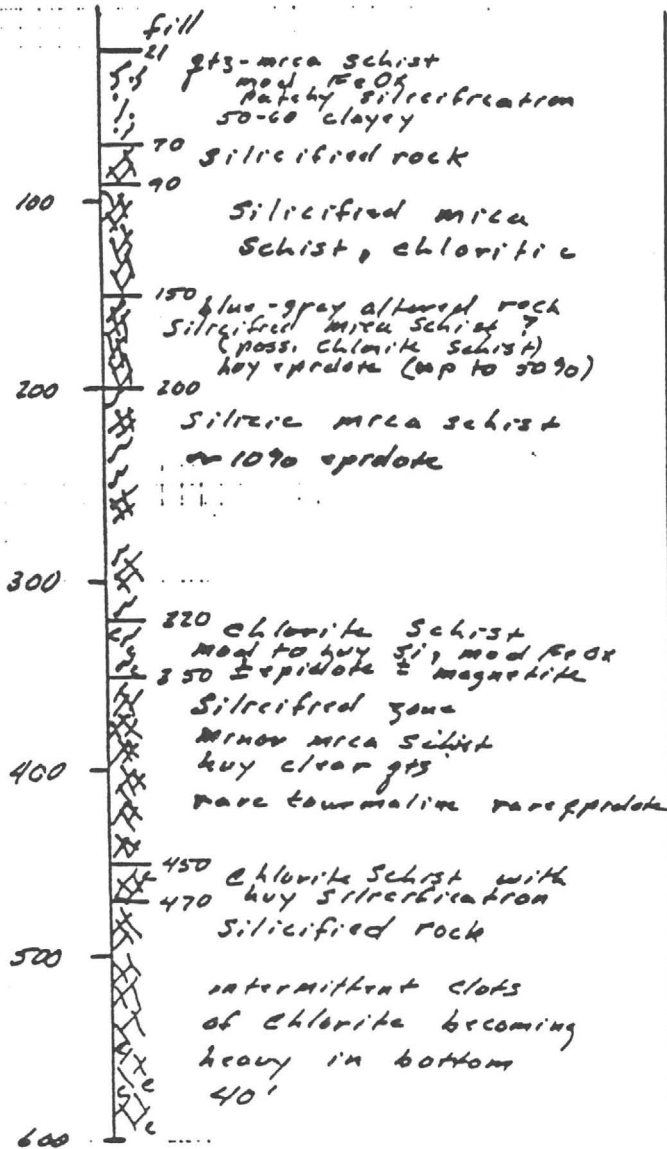 fill
21
qtz-mica schist
mod FeOx
patchy silicification
50-60 clayey
70
silicified rock
90
100
Silicified mica
Schist, chloritic
150 blue-gray altered rock
Silicified mica schist ?
(poss. chlorite schist)
hvy epidote (up to 50%)
200
200
Silicic mica schist
~ 10% epidote
300
320 chlorite schist
mod to hvy Si, mod FeOx
350 ± epidote ± magnetite
Silicified zone
minor mica schist
hvy clear qtz
400
rare tourmaline rare epidote
450 chlorite schist with
470 hvy silicification
Silicified rock
500
intermittent clots
of chlorite becoming
heavy in bottom
40'
600